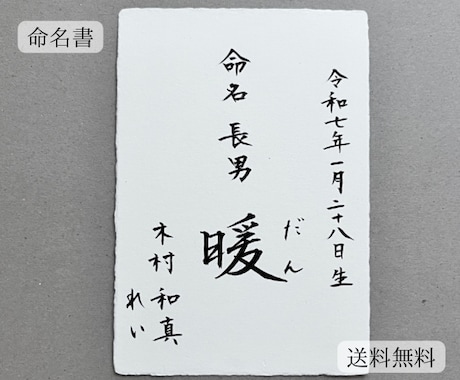 命名書
令和七年一月二十八日生
命名 長男
暖
だん
木村 和真
れい
送料無料